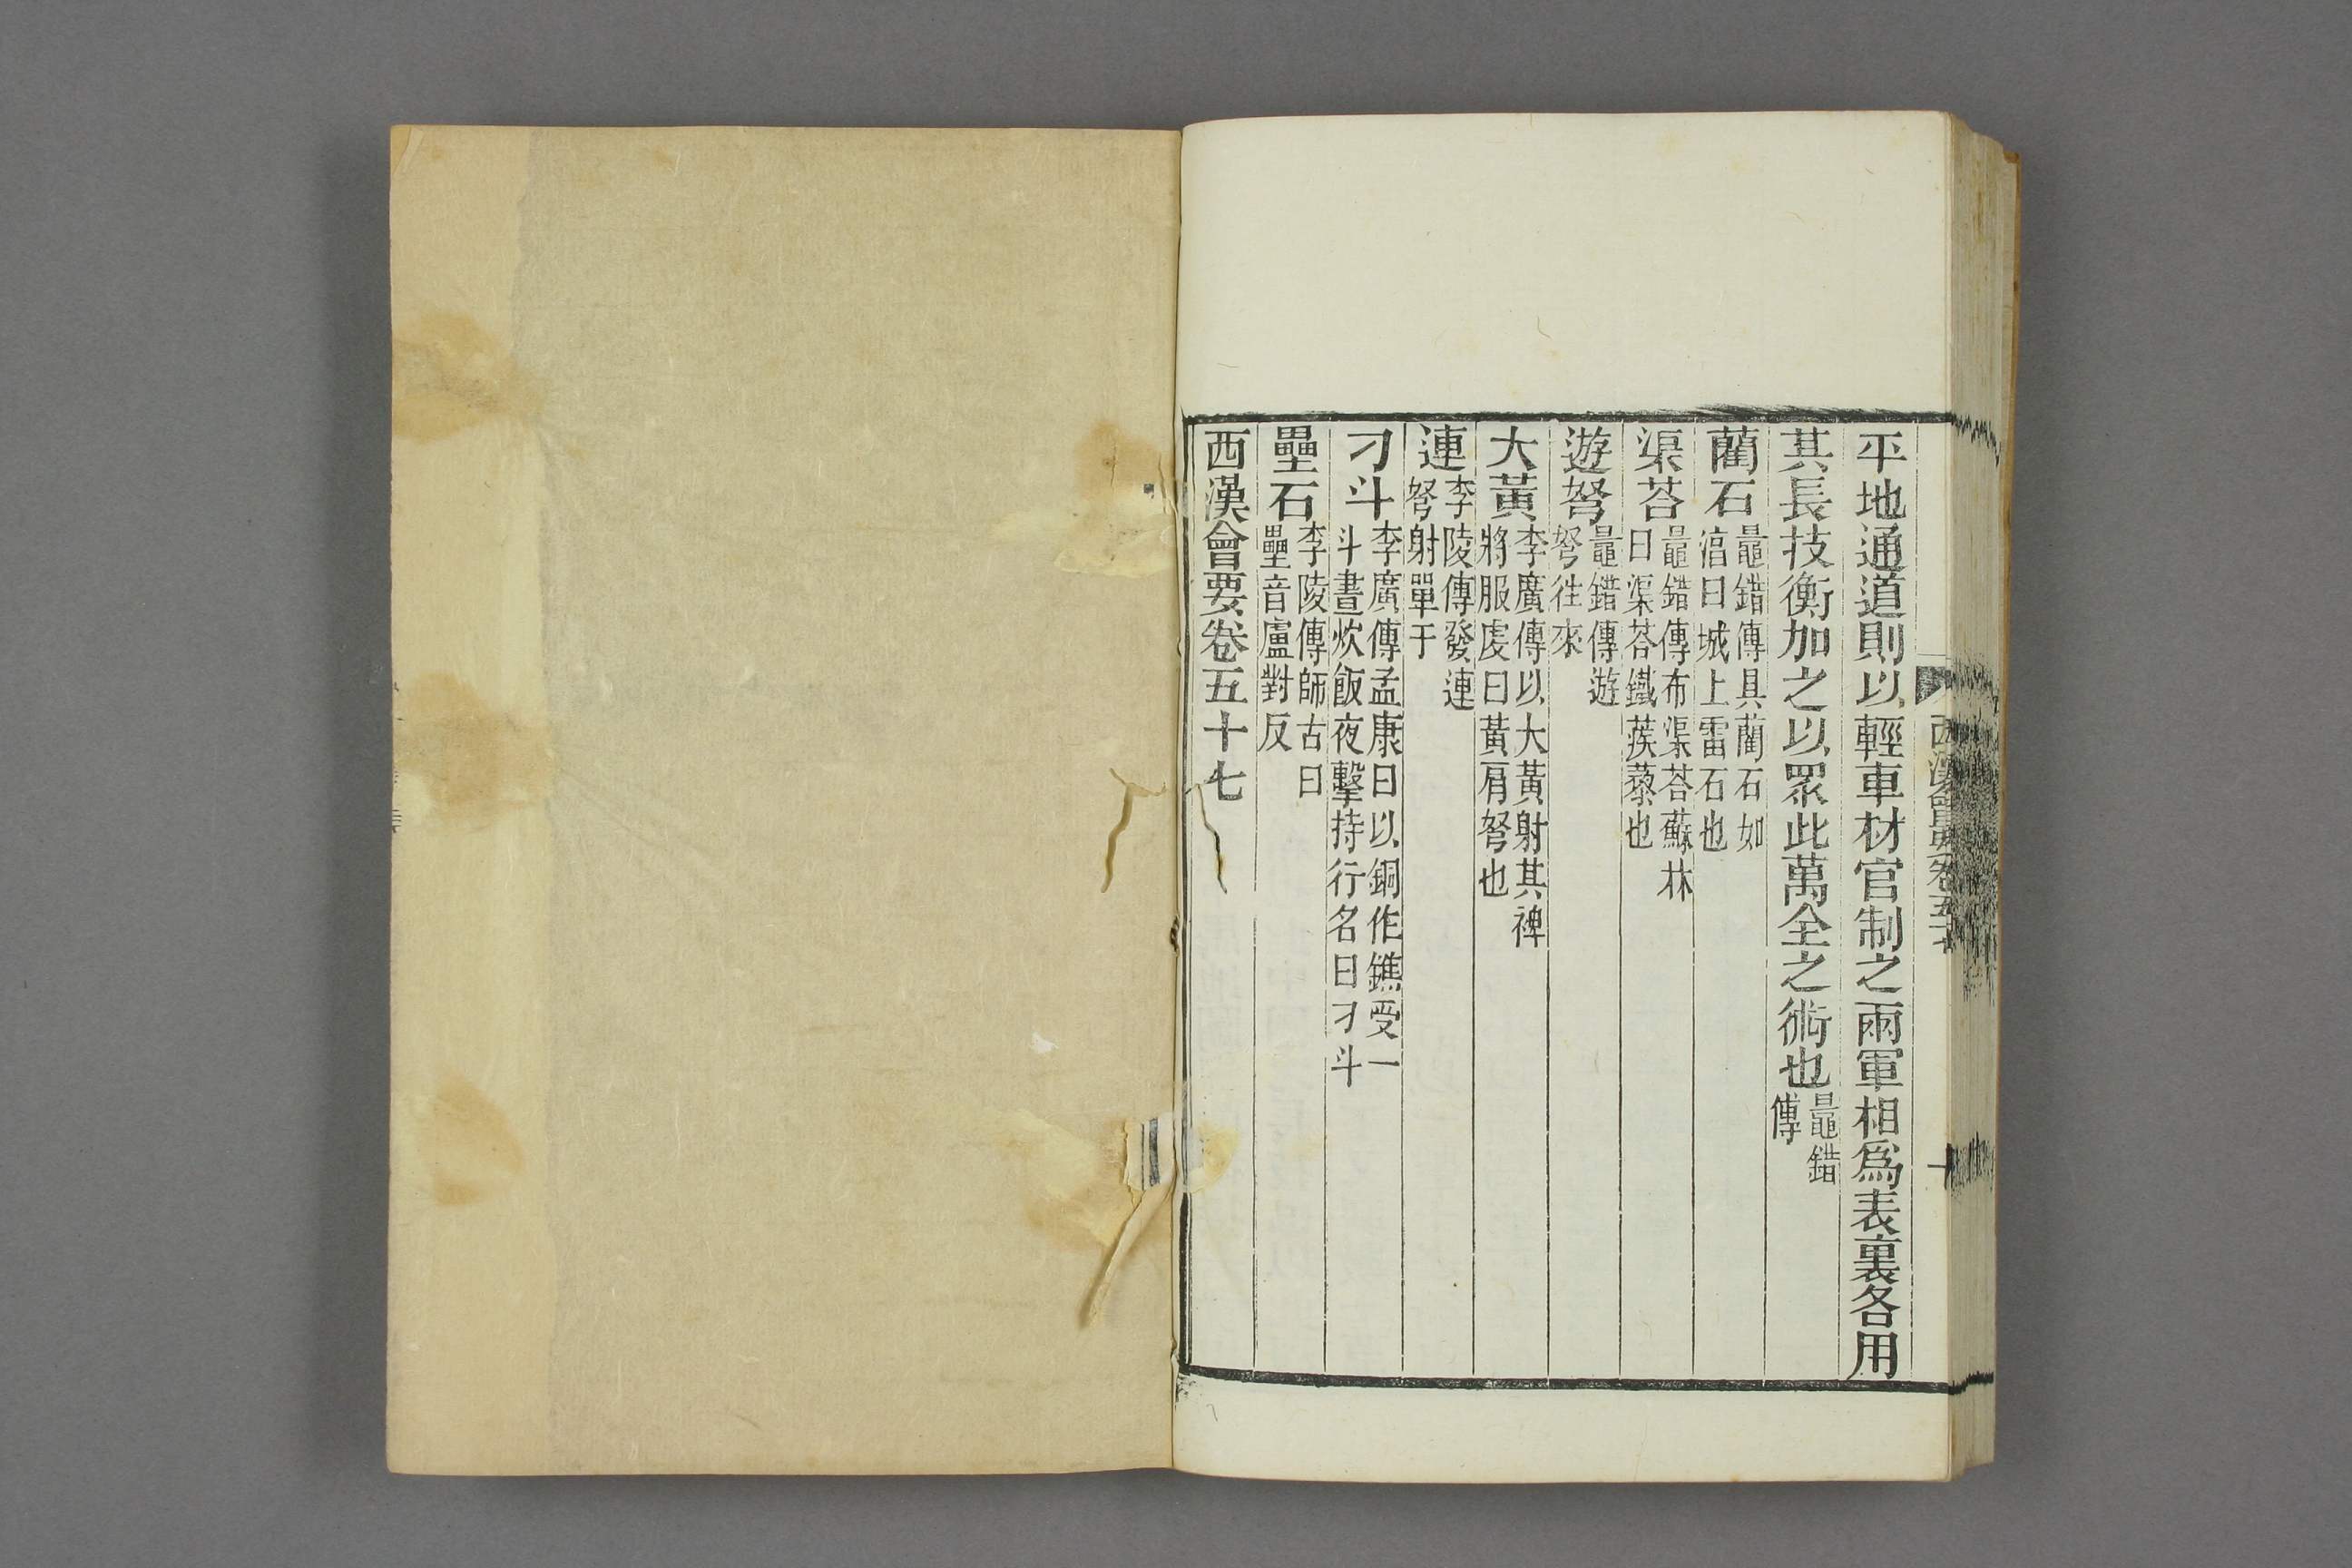 平地通道則以輕車材官制之兩軍相爲表裏各用
其長技衡加之以眾此萬全之術也鼂錯
傳
藺石鼂錯傳具藺石如
湻曰城上雷石也
渠荅鼂錯傳布渠荅蘇林
曰渠荅鐵蒺蔾也
遊弩鼂錯傳遊
弩徃來
大黃李廣傳以大黃射其裨
將服虔曰黃肩弩也
連李陵傳發連
弩射單于
刁斗李廣傳孟康曰以銅作鐎受一
斗晝炊飯夜擊持行名曰刁斗
壘石李陵傳師古曰
壘音盧對反
西漢會要卷五十七
西漢會要卷五十七